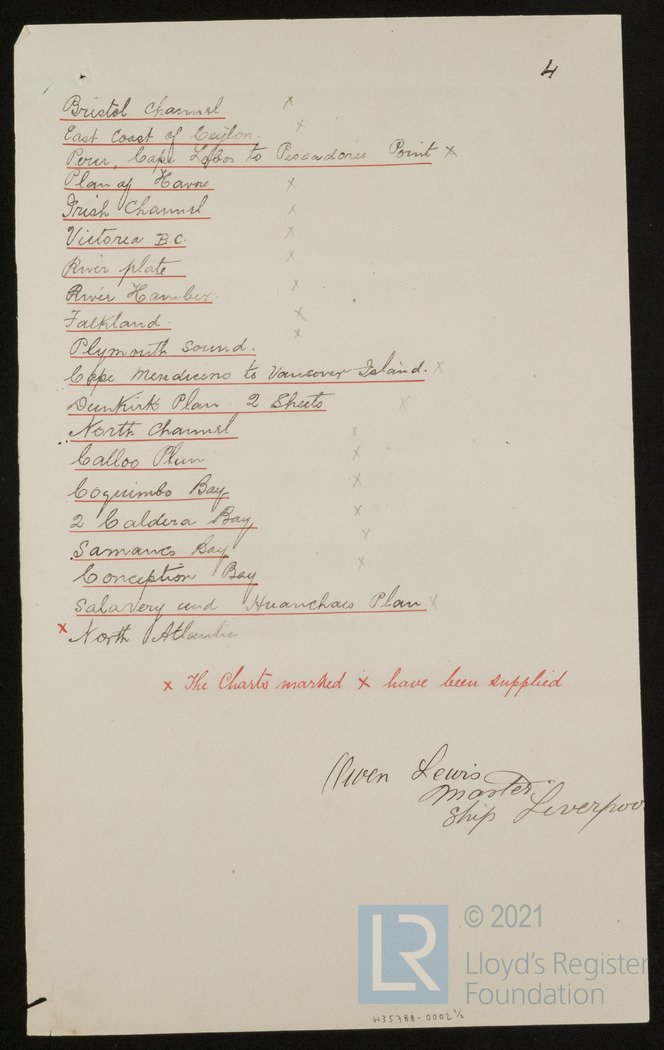 4
Bristol Channel x
East Coast of Ceylon. x
Peru, Cape Lobos to Pescadores Point x
Plan of Havre x
Irish Channel x
Victoria B.C. x
River plate x
River Humber. x
Falkland. x
Plymouth Sound. x
Cape Mendicino to Vancover Island. x
Dunkirk Plan. 2 Sheets x
North Channel x
Calloo Plan x
Coquimbo Bay x
2 Caldera Bay x
Samanco Bay x
Conception Bay x
Salavery and Huanchaco Plan x
x North Atlantic
x The Charts marked x have been supplied
Owen Lewis
Master.
Ship Liverpoo
LR
© 2021
Lloyd's Register
Foundation
W35788-0002 1/2